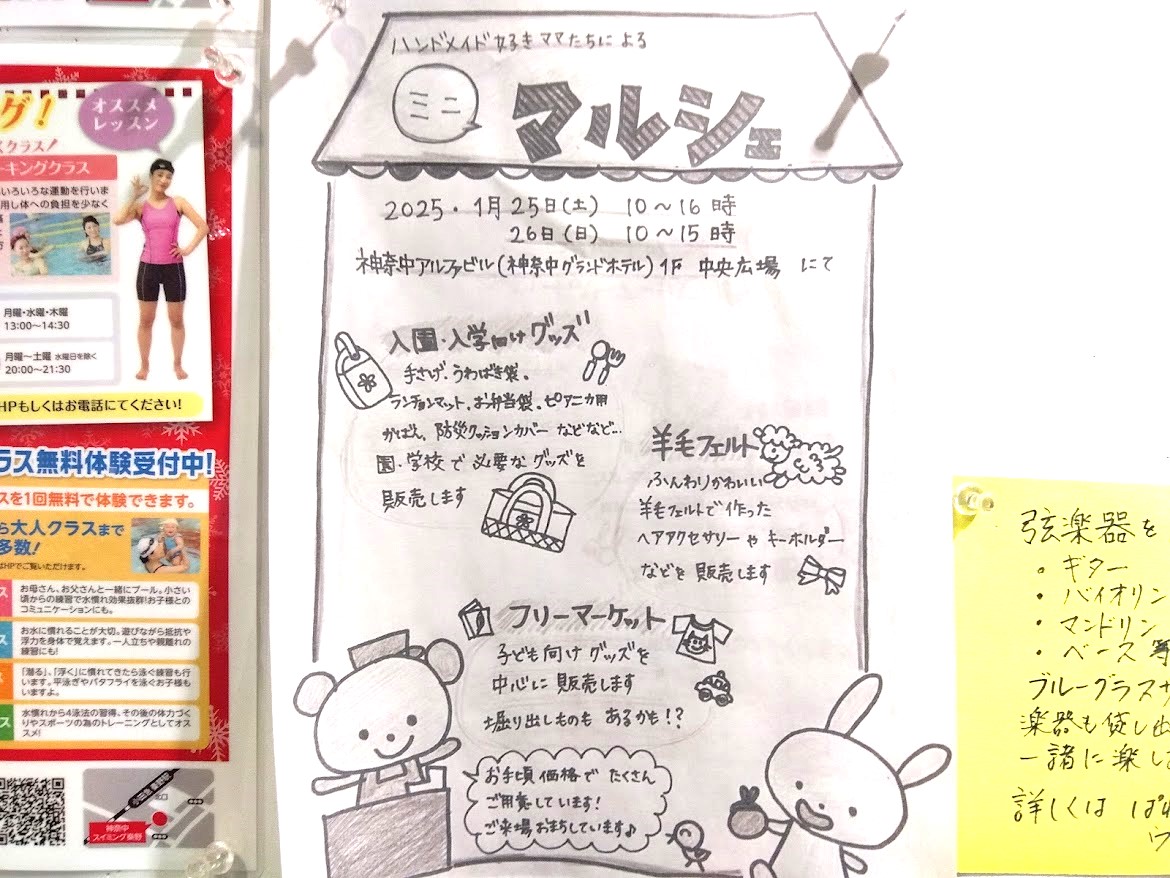 グ!
オススメ
レッスン
スクラス!
ーキングクラス
いろいろな運動を行いま
用し体への負担を少なく
月曜・水曜・木曜
13:00〜14:30
月曜〜土曜 水曜日を除く
20:00〜21:30
HPもしくはお電話にてください!
ラス無料体験受付中!
スを1回無料で体験できます。
ら大人クラスまで
多数!
はHPでご覧いただけます。
お母さん、お父さんと一緒にプール。小さい
頃からの練習で水慣れ効果抜群!お子様との
コミュニケーションにも。
お水に慣れることが大切。遊びながら抵抗や
浮力を身体で覚えます。一人立ちや親離れの
練習にも!
「潜る」、「浮く」に慣れてきたら泳ぐ練習も行
います。平泳ぎやバタフライを泳ぐお子様も
いますよ。
水慣れから4泳法の習得、その後の体力づく
りやスポーツの為のトレーニングとしてオス
スメ!
神奈中
スイミング秦野
ハンドメイド好きママたちによる
ミニ
マルシェ
2025・1月25日(土) 10〜16時
26日(日) 10〜15時
神奈中アルファビル(神奈中グランドホテル)1F 中央広場 にて
入園・入学向けグッズ
手さげ、うわばき袋、
ランチョンマット、お弁当袋、ピアニカ用
かばん、防災クッションカバー などなど…
園・学校で必要なグッズを
販売します
羊毛フェルト
ふんわりかわいい
羊毛フェルトで作った
ヘアアクセサリー や キーホルダー
などを販売します
フリーマーケット
子ども向けグッズを
中心に販売します
堀り出しものも あるかも!?
お手頃価格で たくさん
ご用意しています!
ご来場お待ちしています♪
弦楽器を
。ギター
・バイオリン
・マンドリン
・ベース 等
ブルーグラスサ
楽器も貸し出
一諸に楽し
詳しくは ぱ